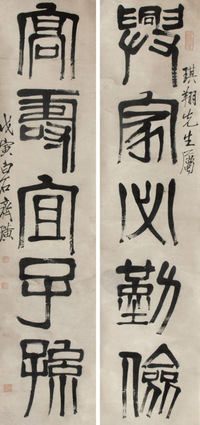 琪翔先生屬
興家必勤儉
高壽宜子孫
戊寅白石齊璜